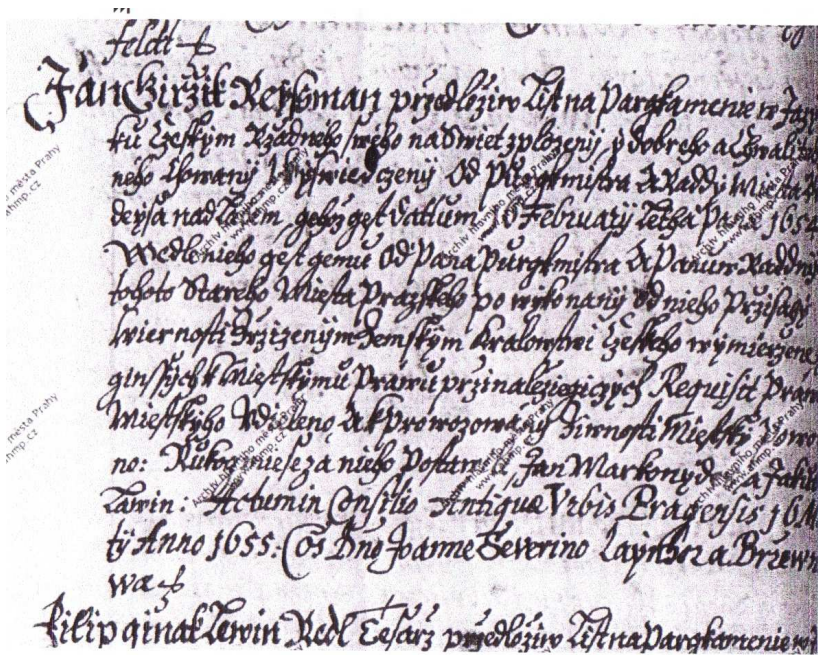 feldt
Jan Giržik Reyßman předložiw List na Pargkamenie w Jazy
ku Czeském Rzadneho sweho na Swiet zplozenij y dobreho a Chwaliteb
neho Chowanij Wyswiedczenij Od Purgkmistra A Raddy Miesta
deysa nad Labem, gehož gest Datum February Letha Panie 1654
Wedle nieho gest gemu Od Pana Purgkmistra A Panuw Raddnych
tohoto Stareho Miesta Prazskeho po wykonanij od nieho Przisahy
Wiernosti Zrzizenijm Zemskym Kralowstwi Czeskeho wymierzene
ginssych k Miestskymu Prawu przinalezegiczych Requisit Prawo
Miestskyho Udieleno, A k prowozowanij Ziwnosti Miestsky Powo
no: Rukogmie se za nieho Postaw Jan Markonyd a Jakub
Lawin: Actum in Consilio Antiquae Urbis Pragensis 16 M
ty Anno 1655. Cos Dno Joanne Severino Laynhoz a Brzewn
wa
Filip ginak Lewin Redl Tesarz przedložiw List na Pargkamenie w
Archiv hlavního města Prahy
www.ahmp.cz